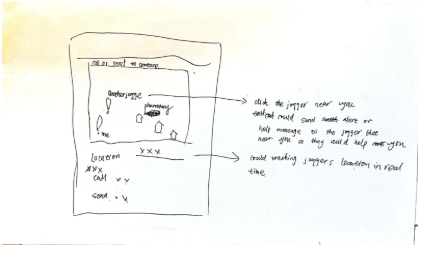 call or send to
another jogger
pharmacy
me
Location xxx
xxx
call xx
send xx
click the jogger near you
could send alert or
help message to the jogger that
near you so they could help you
could tracking joggers location in real
time